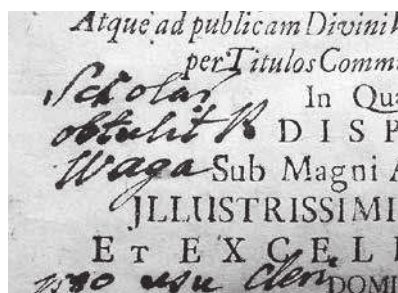 Atque ad publicam Divini
per Titulos Comm
Scholar In Qua
obtulit R DISP
Waga Sub Magni A
JLLUSTRISSIMI
ET EXCELL
pro usu cleri DOMI